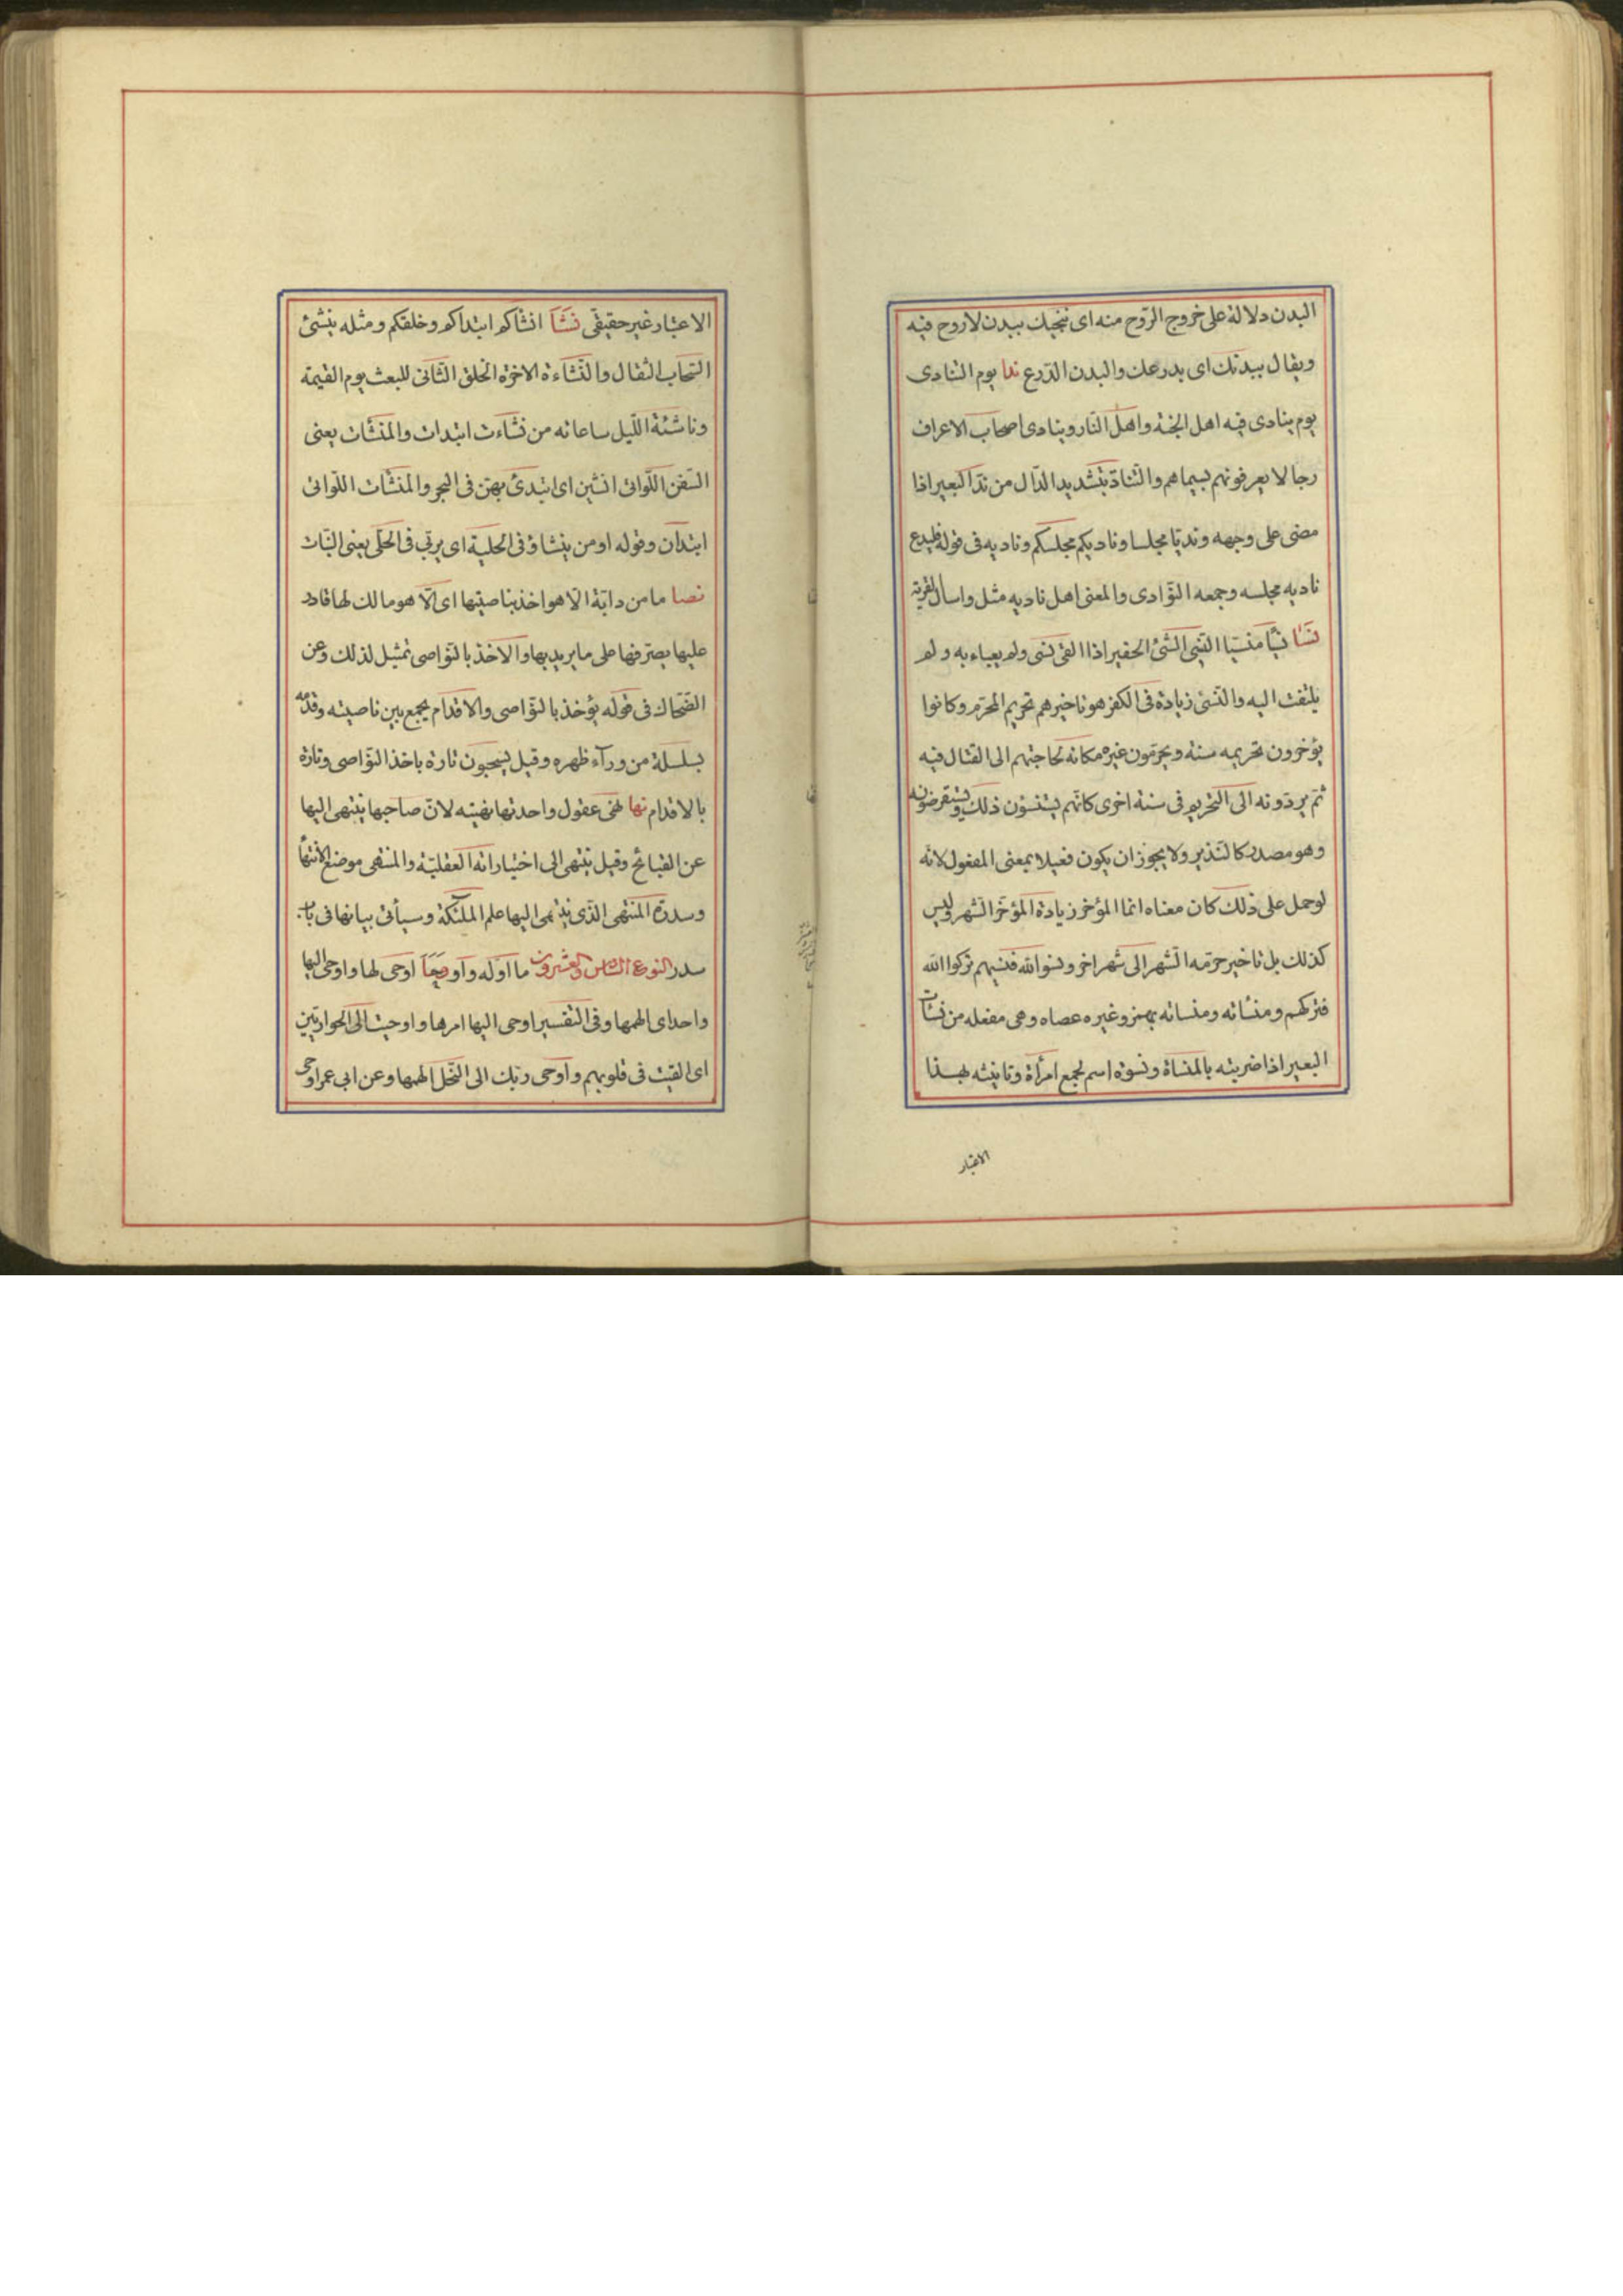 البدن دلالة على خروج الروح منه اى ننجيك ببدن لا روح فيه
ويقال ببدنك اى بدرعك والبدن الدّرع ندا يوم التنادى
يوم ينادى فيه اهل الجنة واهل النار وينادى اصحاب الاعراف
رجالا يعرفونهم بسيماهم والتنادّ بتشديد الدّال من ندّ البعير اذا
مضى على وجهه ونديّا مجلسا وناديكم مجلسكم وناديه فى قوله فليدع
ناديه مجلسه وجمعه النوادى والمعنى اهل ناديه مثل واسال القرية
نسأ نسيّا منسيّا النسى الشئ الحقير اذا القى نسى ولم يعباء به ولم
يلتفت اليه والنسئ زيادة فى الكفر هو تاخيرهم تحريم المحرّم وكانوا
يؤخرون تحريمه سنة ويحرّمون غيره مكانه لحاجتهم الى القتال فيه
ثمّ يردّونه الى التحريم فى سنة اخرى كانّهم يستنسؤن ذلك ويستقرضونه
وهو مصدر كالنذير ولا يجوز ان يكون فعيلا بمعنى المفعول لانّه
لو حمل على ذلك كان معناه انما المؤخر زيادة المؤخّر الشهر وليس
كذلك بل تاخير حرمة الشهر الى شهر اخر ونسوا الله فنسيهم تركوا الله
فتركهم ومنسأته ومنساته بهمز وغيره عصاه وهى مفعله من نسأت
البعير اذا ضربته بالمنساة ونسوة اسم لجمع امرأة وتانيثه بهذا
الاعتبار
الاعتبار غير حقيقى نشأ انشاكم ابتداكم وخلقكم ومثله ينشئ
السّحاب الثقال والنشاءة الاخرة الخلق الثّانى للبعث يوم القيمة
وناشئة اللّيل ساعاته من نشاءت ابتدات والمنشآت يعنى
السّفن اللّواتى انشئن اى ابتدئ بهنّ فى البحر والمنشآت اللّواتى
ابتدان وقوله اومن ينشاؤ فى الحلية اى يربّى فى الحلى يعنى البنات
نصا ما من دابّة الا هو اخذ بناصيتها اى الّا هو مالك لها قادر
عليها يصرّفها على ما يريد بها والاخذ بالنواصى تمثيل لذلك وعن
الضّحّاك فى قوله يؤخذ بالنواصى والاقدام يجمع بين ناصيته وقدمه
بسلسلة من ورآء ظهره وقيل يسحبون تارة باخذ النّواصى وتارة
بالاقدام نها نهى عقول واحدتها نهية لانّ صاحبها ينتهى اليها
عن القبائح وقيل ينتهى الى اختياراته العقليّة والمنتهى موضع الانتهاء
وسدرة المنتهى الّذى ينتهى اليها علم الملئكة وسيأتى بيانها فى باب
سدر النوع السادس والعشرون ما اوله واو وحا اوحى لها واوحى اليها
واحد اى الهمها وفى التفسير اوحى اليها امرها واوحيت الى الحواريّين
اى القيت فى قلوبهم واوحى ربّك الى النّحل الهمها وعن ابى عمر اوحى